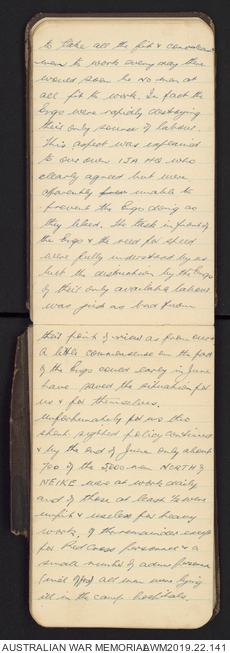 to take all the fit & convalescent
men to work every day there
would soon be no men at
all fit to work. In fact the
Engs were rapidly destroying
their only source of labour.
This aspect was explained
to our own IJA HQ who
clearly agreed but were
apparently unable to
prevent the Engs doing as
they liked. The task in front of
the Engs & the need for speed
were fully understood by us
but the destruction by the Engs
of their only available labour
was just as bad from
their point of view as from ours
A little commonsense on the part
of the Engs could early in June
have saved the situation for
us & for themselves.
Unfortunately for us this
short sighted policy continued
& by the end of June only about
700 of the 5000 men NORTH of
NEIKE was at work daily
and of these at least ½ were
unfit & useless for heavy
work. Of the remainder except
for Red Cross personnel & a
small number of admin personnel
(incl offrs) all men were lying
ill in the camp hospitals.
AUSTRALIAN WAR MEMORIAL
AWM2019.22.141